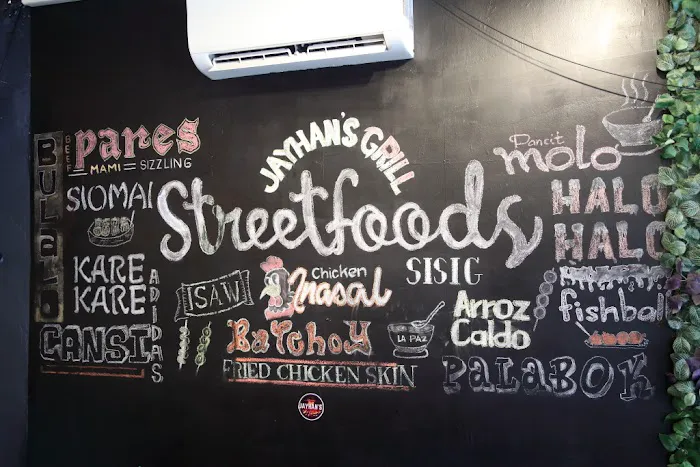 BULALO
BEEF
Pares
MAMI = SIZZLING
SIOMAI
KARE
KARE
ADIDAS
CANSI
JAYHAN'S GRILL
Streetfoods
ISAW
Chicken
Inasal
SISIG
BaTchoy
LA PAZ
FRIED CHICKEN SKIN
JAYHAN'S
Pancit
molo
HALO
HALO
Arroz
Caldo
fishball
PALABOK